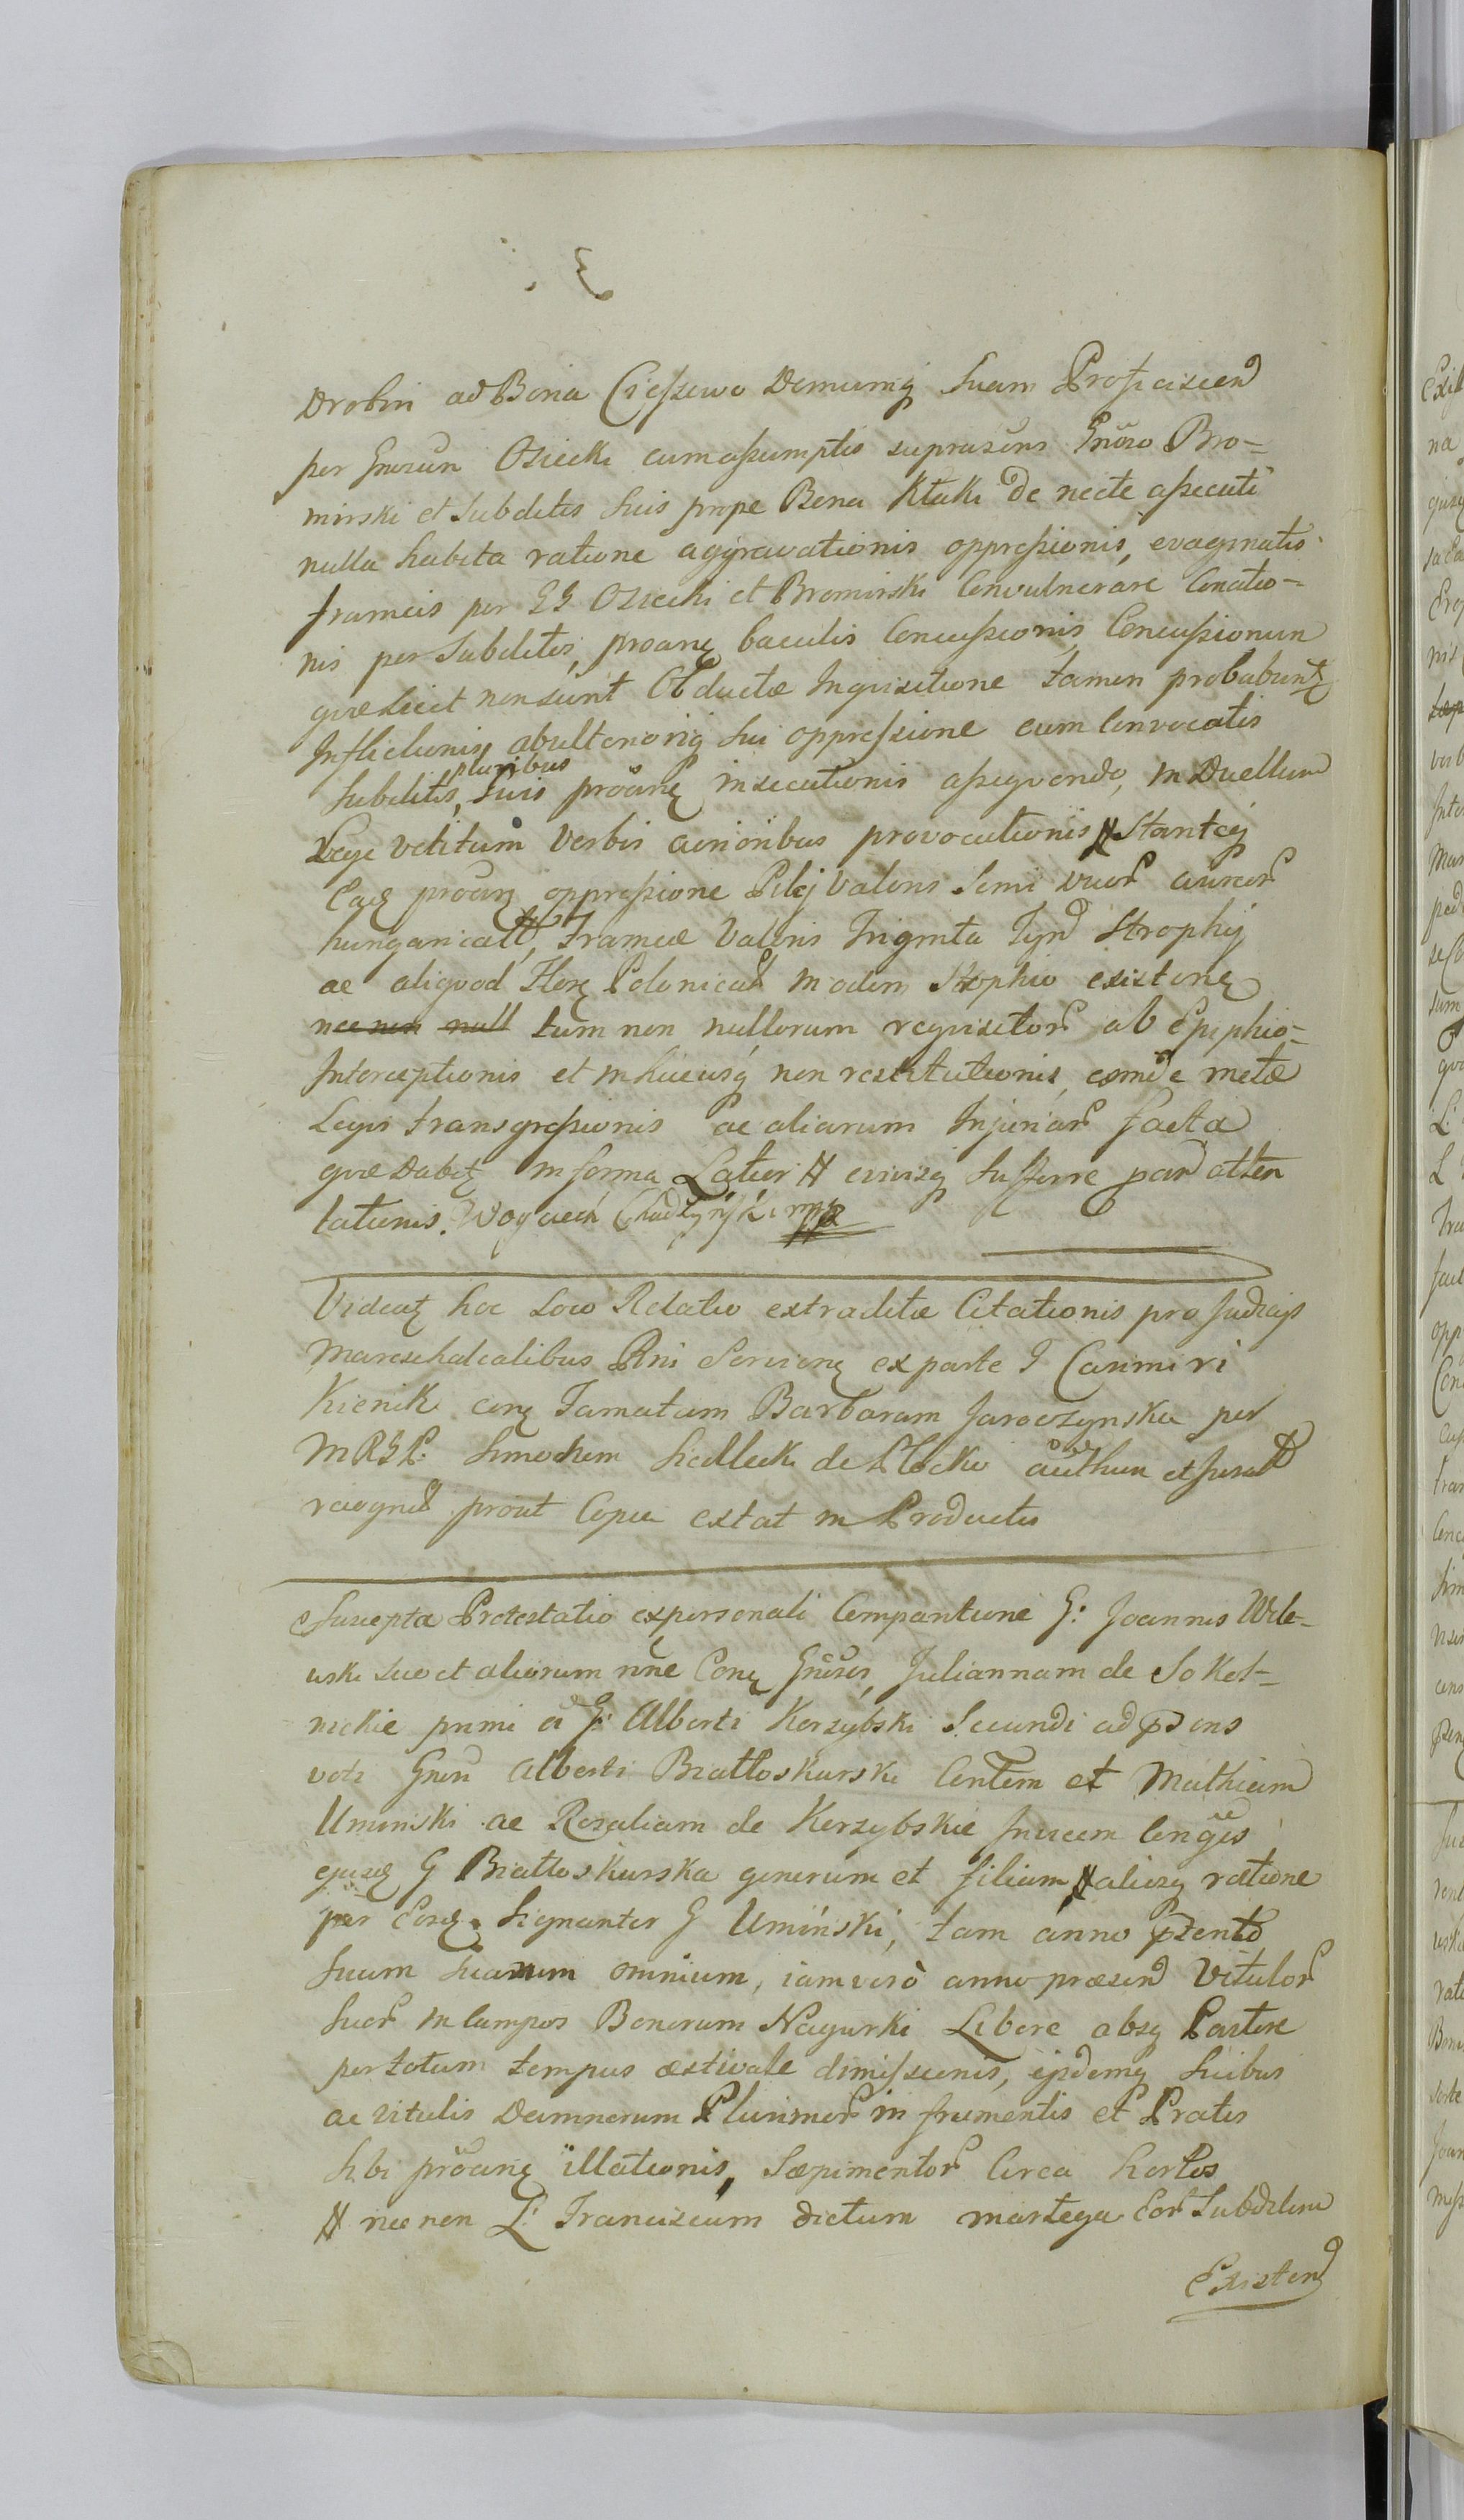 Drobin ad Bona Cieszewo Domumq suam Proficiscend
per Gnosum Osiecki cum assumptis suprascris Gnoso Bro-
mirski et Subditis suis prope Bona Kłaki de nocte assecuti
nulla habita ratione aggravationis oppressionis, evaginatis
frameis per GG Osiecki et Bromirski Convulnerare Conatio-
nis per Subditos, proanę baculis Concussionis, Concussionum
quæ licet non sunt Obductæ Inquisitione tamen probabuntę
Inflictionis, ab ulteriorię sui oppressione cum Convocatis
Subditis, pluribus suis proanę insecutionis assequendo, in Duellum
Lege vetitum verbis acrioribus provocationis # Stanteq
Eaq proanę oppressione Pilej valoris semi aureor
hungaricalt, Frameæ Valoris Triginta Tynf Strophij
ac aliquod Flore Polonical in eodem Strophio existenę
nec non null tum non nullorum requisitor ab Epiphio-
Interceptionis et in hucusq non restitutionis, eomde metæ
Legis transgressionis ac aliarum Injuriar facta
quæ Dabitę in forma Latiori # eiusq sufferre pard atten
tationis. Woyciech Chadzyński mpp
Videatę hoc Loco Relatio extraditæ Citationis pro Judicijs
Mareschalcalibus Rni Servienę ex parte G Casimiri
Kicnik conę Famatam Barbaram Jaroczynska per
MRGL: Simochem Siedlecki de Płocko authen et Jurat
recognit prout Copia extat in Productis
Suscepta Protestatio ex personali Comparitione G: Joannis Wile-
wski suo et aliorum nne Conę Gnosos, Juliannam de Sokol-
nickie primi a G: Alberti Korzybski Secundi ad præns
voti Gnosi Alberti Białłoskurski Contem et Mathiam
Uminski ac Rozaliam de Korzybskie Invicem Conges
ejusq G Białłoskurska generum et filiam, # aliosq ratione
per Eosq signanter G Umiński, tam anno przento
suum suarum omnium, iam vero anno præsend Vitulor
suor in campos Bonorum Nagurki Libere absq Pastore
per totum tempus æstivale dimissionis, ijsdemq suibus
ac vitulis Damnorum Plurimor in frumentis et Pratis
sibi proanę illationis, Sæpimentor Circa hortos
# nec non L: Franciscum dictum martega Eor Subditum
Existend